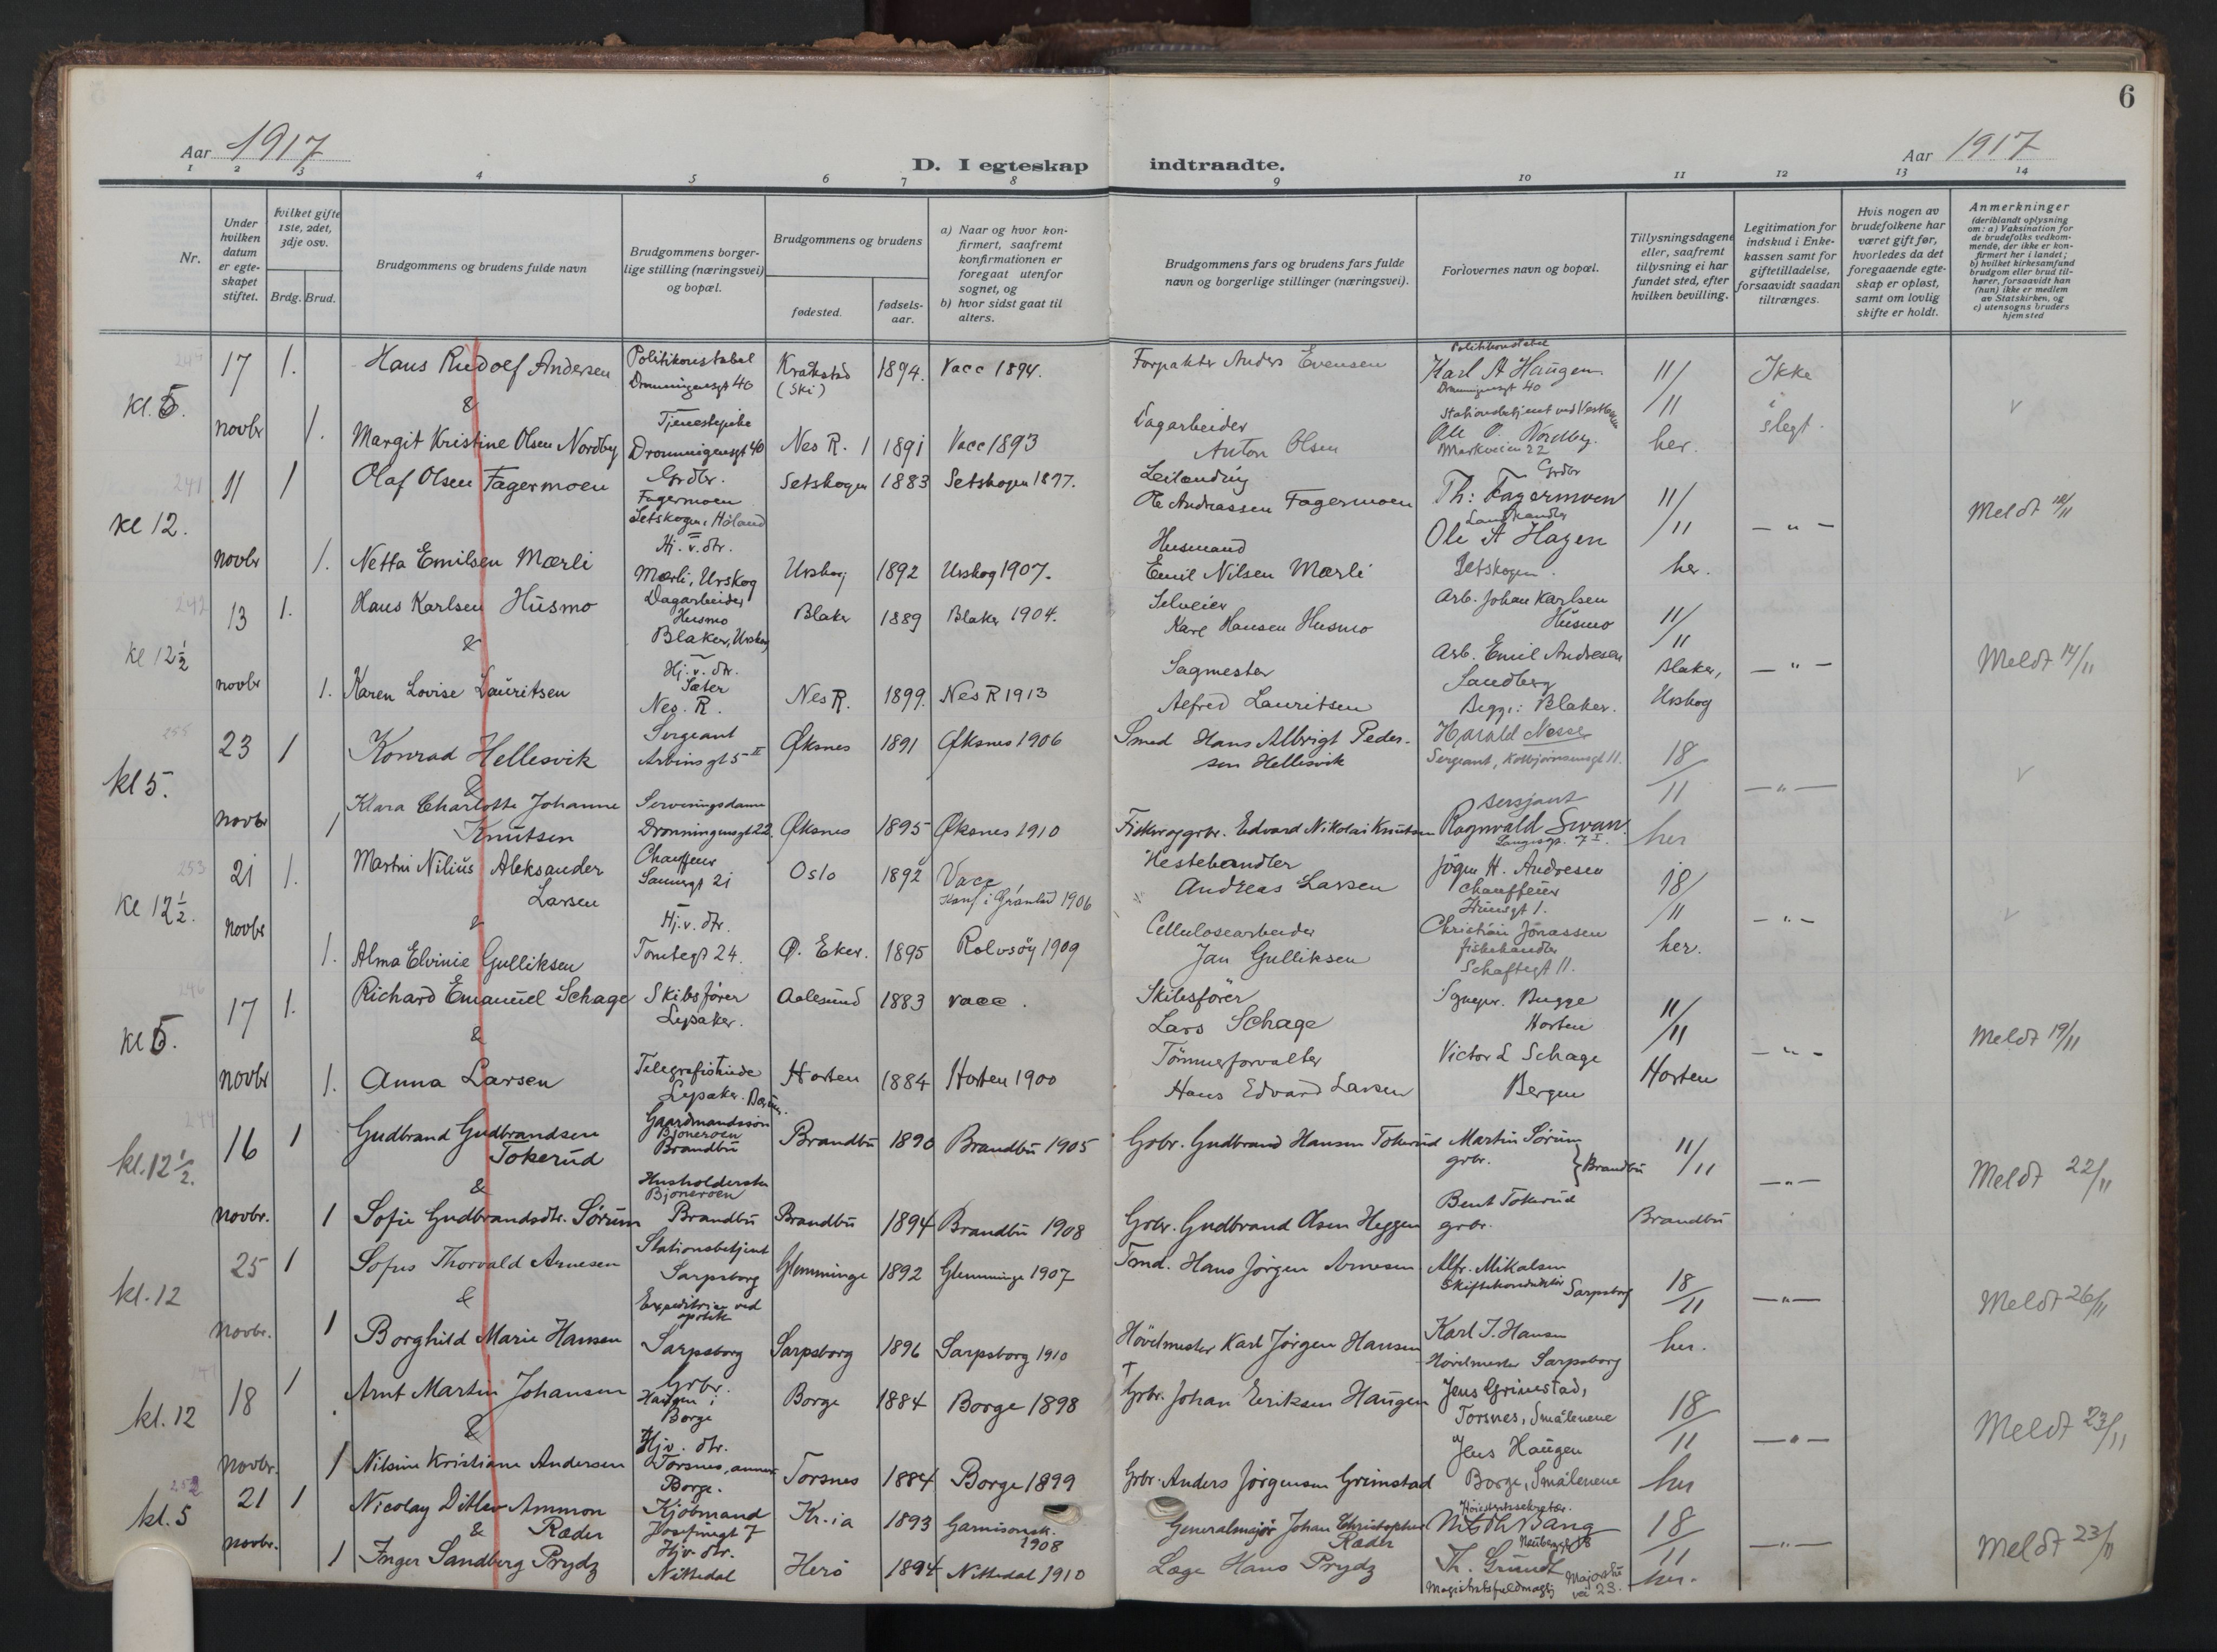 6
Aar 1917
D. I egteskap indtraadte.
Aar 1917
1 2 3 4 5 6 7 8 9 10 11 12 13 14
Nr.
Under hvilken datum er egteskapet stiftet.
hvilket gifte 1ste, 2det, 3dje osv.
Brdg. Brud.
Brudgommens og brudens fulde navn
Brudgommens borgerlige stilling (næringsvei) og bopæl.
Brudgommens og brudens
fødested.
fødselsaar.
a) Naar og hvor konfirmert, saafremt konfirmationen er foregaat utenfor sognet, og
b) hvor sidst gaat til alters.
Brudgommens fars og brudens fars fulde navn og borgerlige stillinger (næringsvei).
Forlovernes navn og bopæl.
Tillysningsdagene eller, saafremt tillysning ei har fundet sted, efter hvilken bevilling.
Legitimation for indskud i Enkekassen samt for giftetilladelse, forsaavidt saadan tiltrænges.
Hvis nogen av brudefolkene har været gift før, hvorledes da det foregaaende egteskap er opløst, samt om lovlig skifte er holdt.
Anmerkninger
(deriblandt oplysning om: a) Vaksination for de brudefolks vedkommende, der ikke er konfirmert her i landet; b) hvilket kirkesamfund brudgom eller brud tilhører, forsaavidt han (hun) ikke er medlem av Statskirken, og c) utensogns bruders hjemsted
kl. 5. 17 1. Hans Rudolf Andersen Politikonstabel Dronningensgt 40 Kraakstad (Ski) 1894. Vacc 1894. Forpakter Anders Evensen Politikonstabel Karl A Haugen Dronningensgt 40 11/11 Ikke i slegt.
&
novbr 1. Margit Kristine Olsen Nordby Tjenestepike Dronningensgt 40 Nes R. 1891 Vacc 1893 Dagarbeider Anton Olsen Stationsbetjent ved Vestbanen Ole O. Nordby. Markveien 22 her.
241 kl 12. 11 1 Olaf Olsen Fagermoen Grdbr. Fagermoen Setskogen i Høland Setskogen 1883 Setskogen 1897. Leilending Ole Andreassen Fagermoen Grdbr Th: Fagermoen 11/11 — " — Meldt 12/11
novbr 1. Netta Emilsen Mærli Hj. v. dtr. Mærli, Urskog Urskog 1892 Urskog 1907. Husmand Emil Nilsen Mærli Landhandler Ole A Hagen Setskogen. her.
242 kl 12½ 13 1. Hans Karlsen Husmo Dagarbeider Husmo Blaker, Urskog Blaker 1889 Blaker 1904. Selveier Karl Hansen Husmo Arb. Johan Karlsen Husmo 11/11 — " — Meldt 14/11
&
novbr 1. Karen Lovise Lauritsen Hj. v. dtr. Sæter Nes. R. Nes R. 1899. Nes R 1913 Sagmester Alfred Lauritsen Arb. Emil Andresen Sandberg Begge: Blaker. Blaker, Urskog
255 kl 5. 23 1 Konrad Hellesvik Sergeant Arbinsgt 5 II Øksnes 1891 Øksnes 1906 Smed Hans Albrigt Pedersen Hellesvik Harald Nesse Sergeant, Kolbjørnsensgt 11. 18/11 — " —
&
novbr 1 Klara Charlotte Johanne Knutsen Serveringsdame Dronningensgt 22. Øksnes 1895 Øksnes 1910 Fisker og grbr. Edvard Nikolai Knutsen sersjant Ragnvald Svan. Langesgt. 7 I. her
253 kl 12½. 21 1. Martin Nilius Aleksander Larsen Chauffeur 21 Oslo 1892 Vacc Konf i Grønland 1906 Hestehandler Andreas Larsen Jörgen H. Andresen chauffeur 1. 18/11 — " —
&
novbr 1. Alma Elvinie Gulliksen Hj. v. dtr. Tomtegt 24. Ø. Eker. 1895 Rolvsøy 1909 Cellulosearbeider Jan Gulliksen Christian Jonassen fiskehandler Schaftegt 11. her.
246 kl 5. 17 1. Richard Emanuel Schage Skibsfører Lysaker. Aalesund 1883 vacc. Skibsfører Lars Schage Bugge Horten 11/11 — " — Meldt 19/11
&
novbr 1. Anna Larsen Telegrafistinde Lysaker. Bærum. Horten 1884 Horten 1900 Tømmerforvalter Hans Edvard Larsen Victor L Schage Bergen Horten
244 kl. 12½. 16 1 Gudbrand Gudbrandsen Tokerud Gaardmandssøn Bjoneroen Brandbu Brandbu 1890 Brandbu 1905 Grbr. Gudbrand Hansen Tokerud Martin Sørum grbr. } Brandbu 11/11 — " — Meldt 22/11
&
novbr. 1 Sofie Gudbrandsdtr. Sørum Husholderske Bjoneroen Brandbu Brandbu 1894 Brandbu 1908 Grbr. Gudbrand Olsen Heggen Bent Tokerud grbr. Brandbu
kl. 12 25 1 Sofus Thorvald Arnesen Stationsbetjent Sarpsborg Glemminge 1892 Glemminge 1907 Tmd. Hans Jørgen Arnesen Alfr. Mikalsen Skiftekonduktør Sarpsborg 18/11 — " — Meldt 26/11
&
novbr. 1 Borghild Marie Hansen Expeditrise ved apotek Sarpsborg Sarpsborg 1896 Sarpsborg 1910 Hövelmester Karl Jørgen Hansen Karl J. Hansen Hövelmester Sarpsborg her.
kl. 12 18 1 Arnt Martin Johansen Grbr. Haugen i Borge Borge 1884 Borge 1898 † Grbr. Johan Eriksen Haugen Jens Grimestad, Torsnes, Smålenene 18/11 — " — Meldt 23/11
&
novbr. 1 Nilsine Kristiane Andersen Hjv. dtr. Torsnes, annex Borge. Torsnes 1884 Borge 1899 Grbr. Anders Jørgensen Grimstad Jens Haugen Borge, Smålenene her
252 kl. 5 21 1 Nicolay Ditlev Ammon Ræder Kjøbmand Josefinegt 7 Kr.ia 1893 Garnisonsk. 1908 Generalmajor Johan Christopher Ræder Høiesteretssekretær. Bang Neuberggt 18 18/11 — " — Meldt 23/11
&
novbr. 1 Inger Sandberg Prydz Hjv. dtr. Nittedal Herø 1894 Nittedal 1910 Læge Hans Prydz Th. Grundt Magistratsfuldmægtig Majorstuvei 23. her.